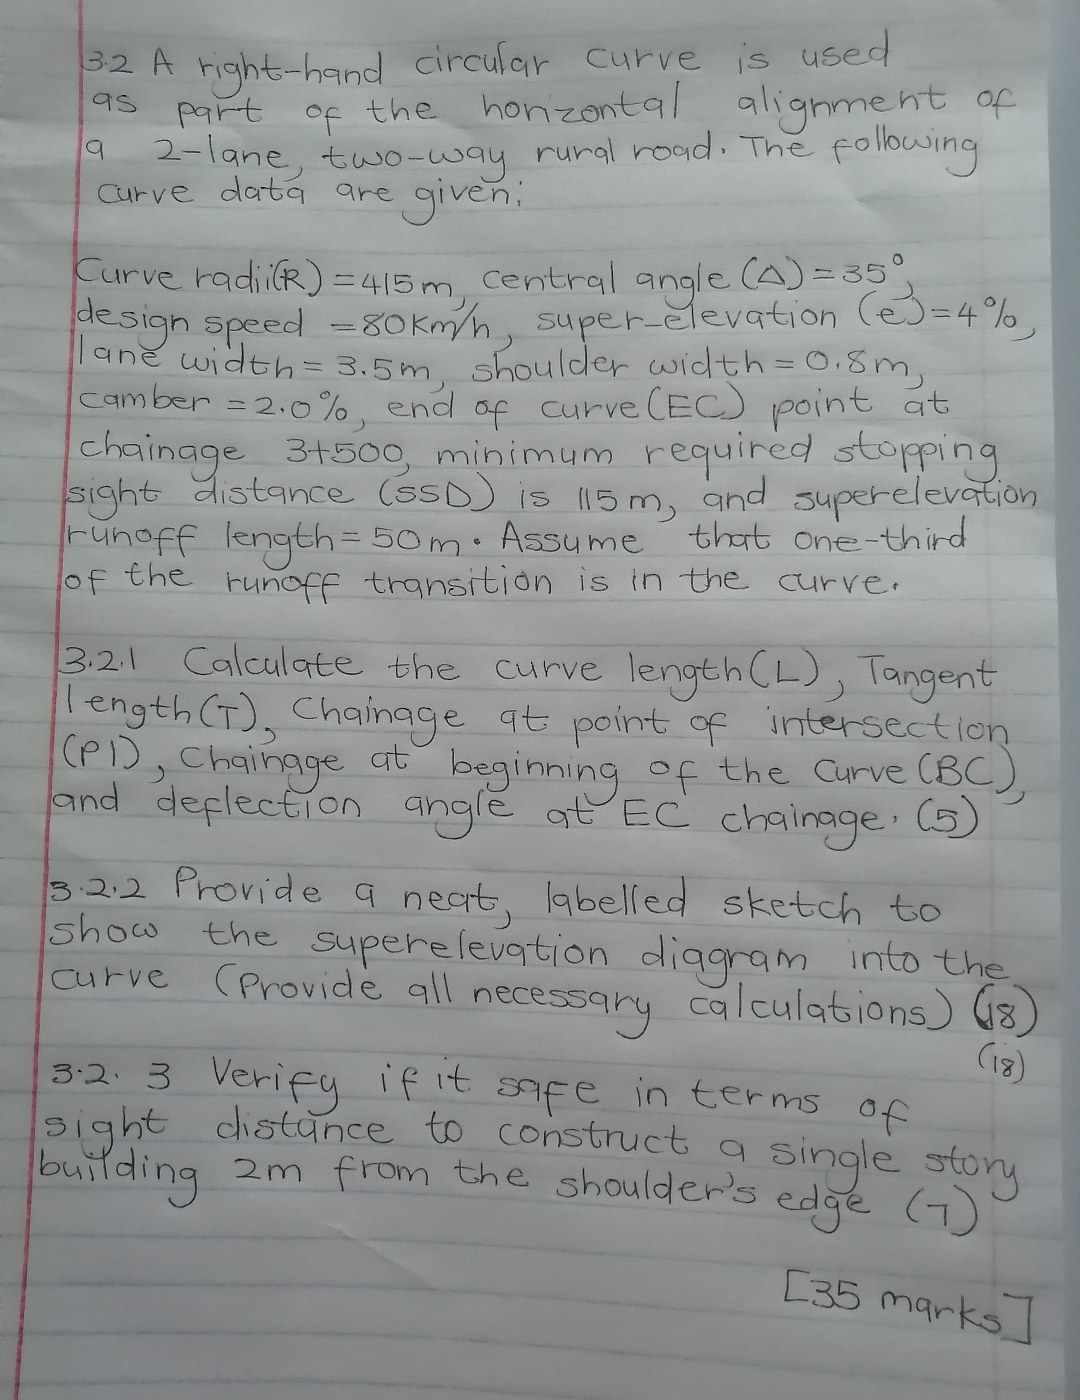 3.2 A right-hand circular curve is used
as part of the horizontal alignment of
a 2-lane, two-way rural road. The following
curve data are given:
Curve radii(R) = 415m, central angle (Δ) = 35°,
design speed = 80km/h, super-elevation (e) = 4%,
lane width = 3.5m, shoulder width = 0.8m,
camber = 2.0%, end of curve (EC) point at
chainage 3+500, minimum required stopping
sight distance (SSD) is 115m, and superelevation
runoff length = 50m. Assume that one-third
of the runoff transition is in the curve.
3.2.1 Calculate the curve length (L), Tangent
length (T), Chainage at point of intersection
(PI), Chainage at beginning of the curve (BC),
and deflection angle at EC chainage. (5)
3.2.2 Provide a neat, labelled sketch to
show the superelevation diagram into the
curve (Provide all necessary calculations) (18)
(18)
3.2.3 Verify if it safe in terms of
sight distance to construct a single story
building 2m from the shoulder's edge (7)
[35 marks]